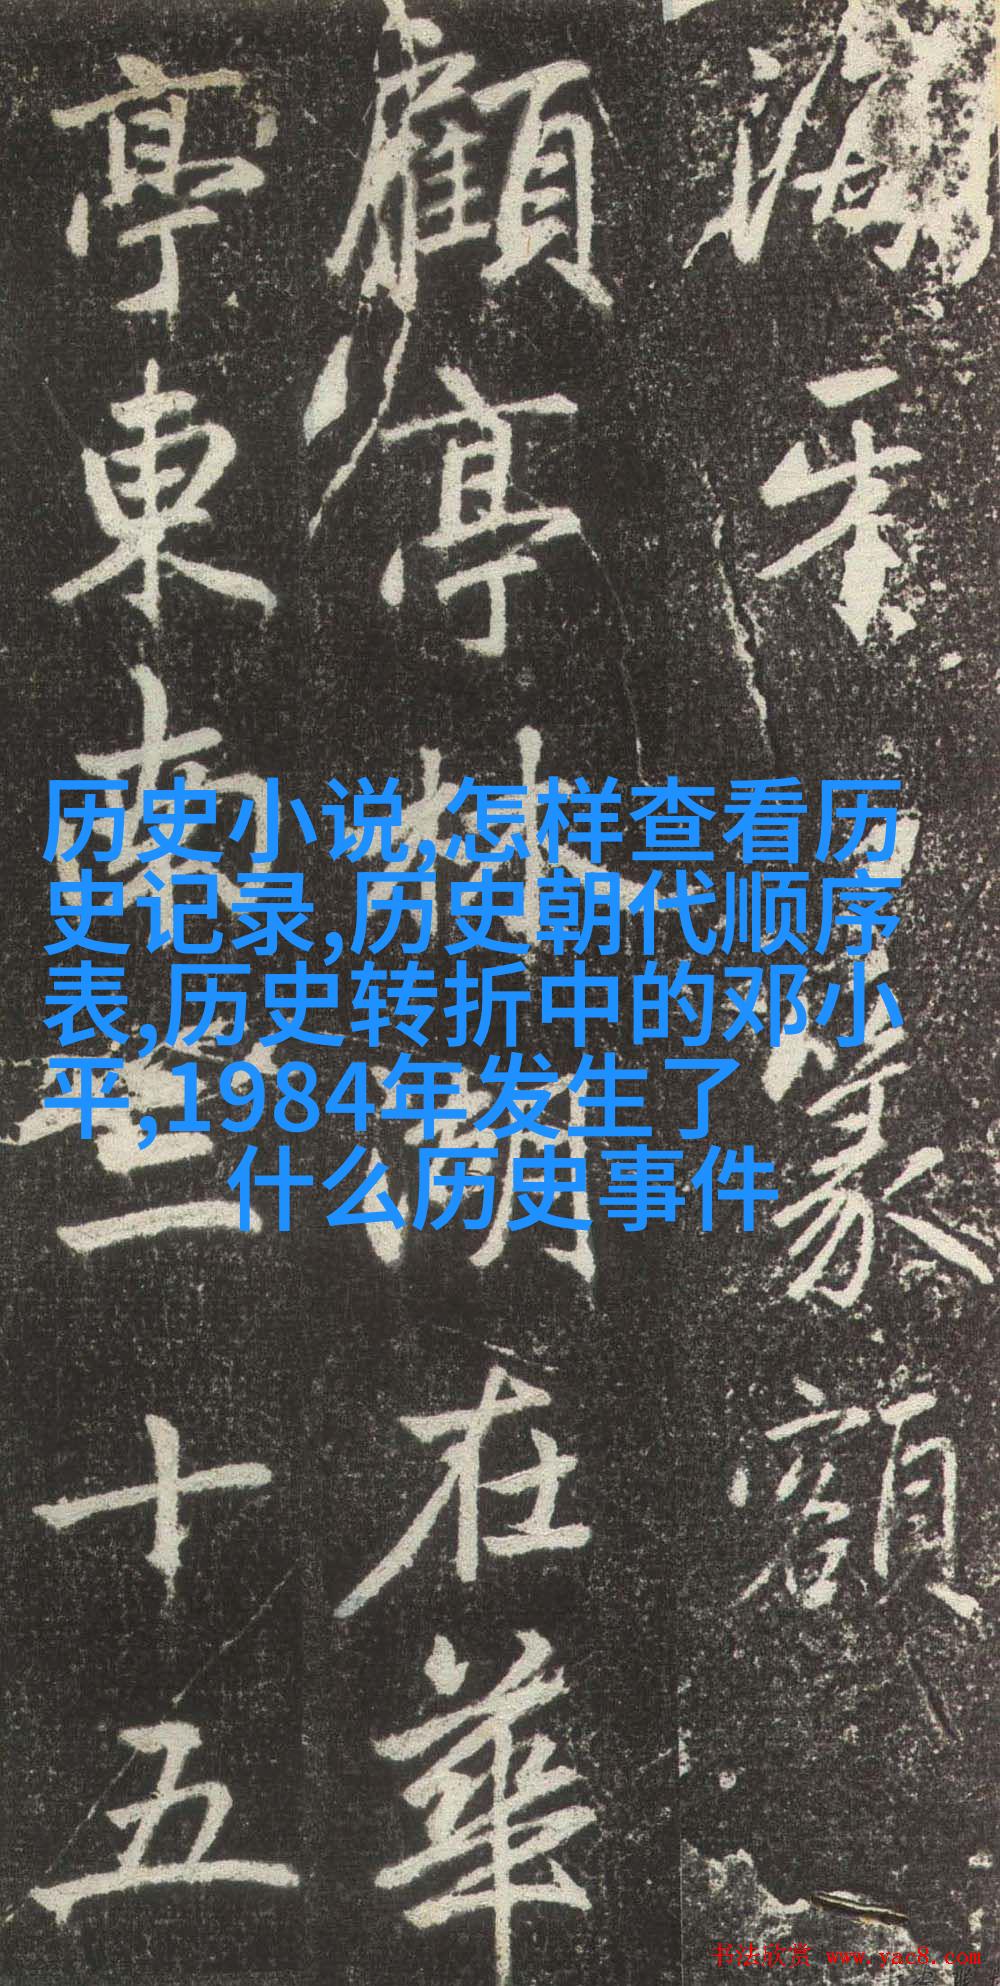 篆額
顧亭林湖在華
亭東南三十五
历史小说,怎样查看历
史记录,历史朝代顺序
表,历史转折中的邓小
平,1984年发生了
什么历史事件
书法欣赏 www.yac8.com